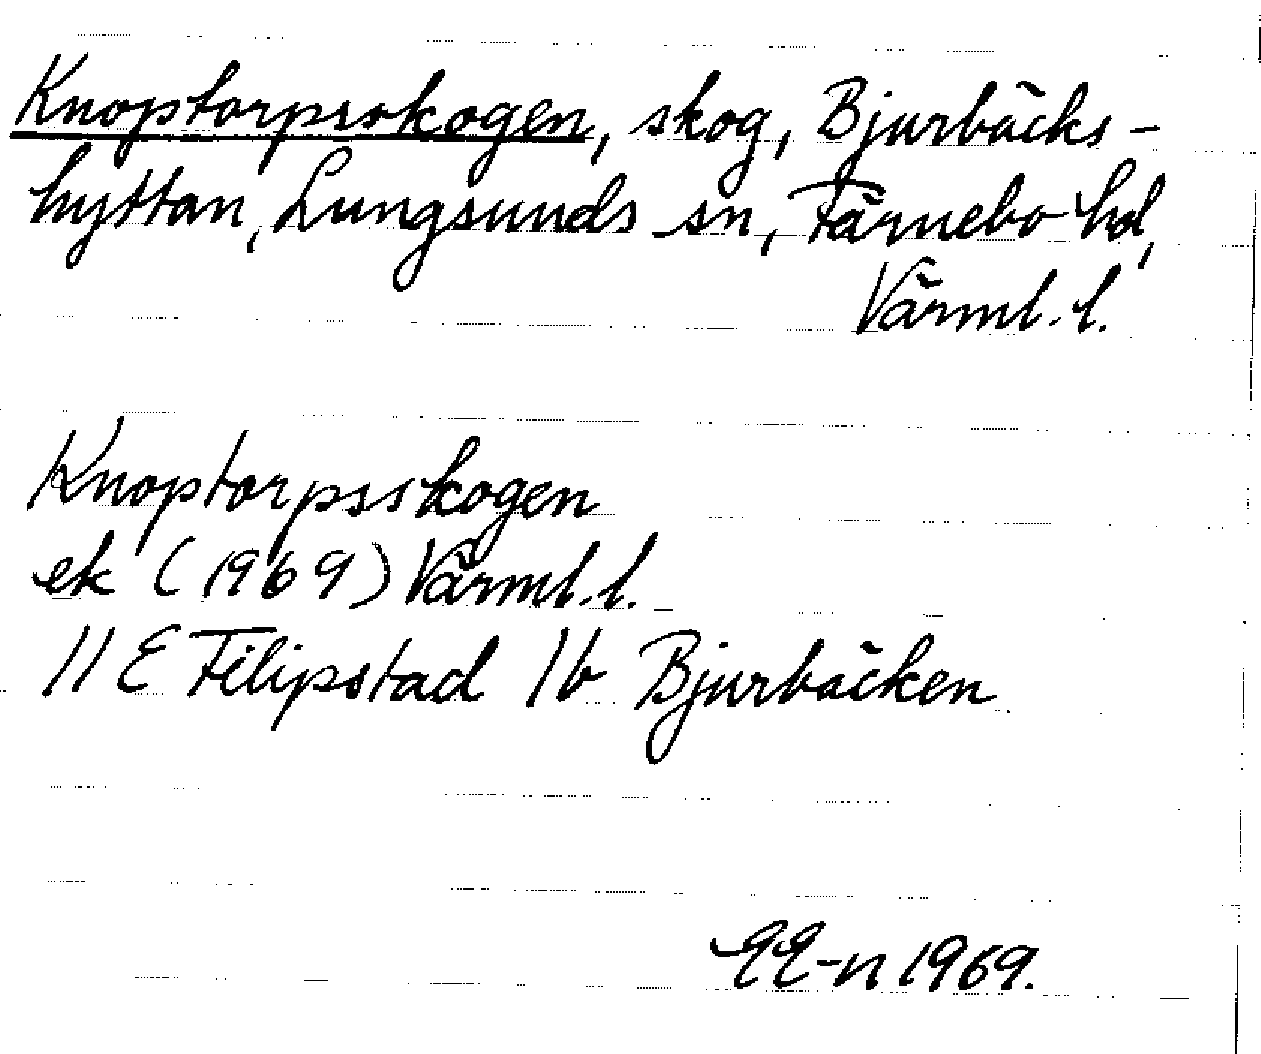 Knoptorpsskogen, skog, Bjurbäcks-
hyttan, Lungsunds sn, Färnebo hd,
Värml. l.
Knoptorpsskogen
ek (1969) Värml. l.
11 E Filipstad 1b Bjurbäcken
EE-n 1969.